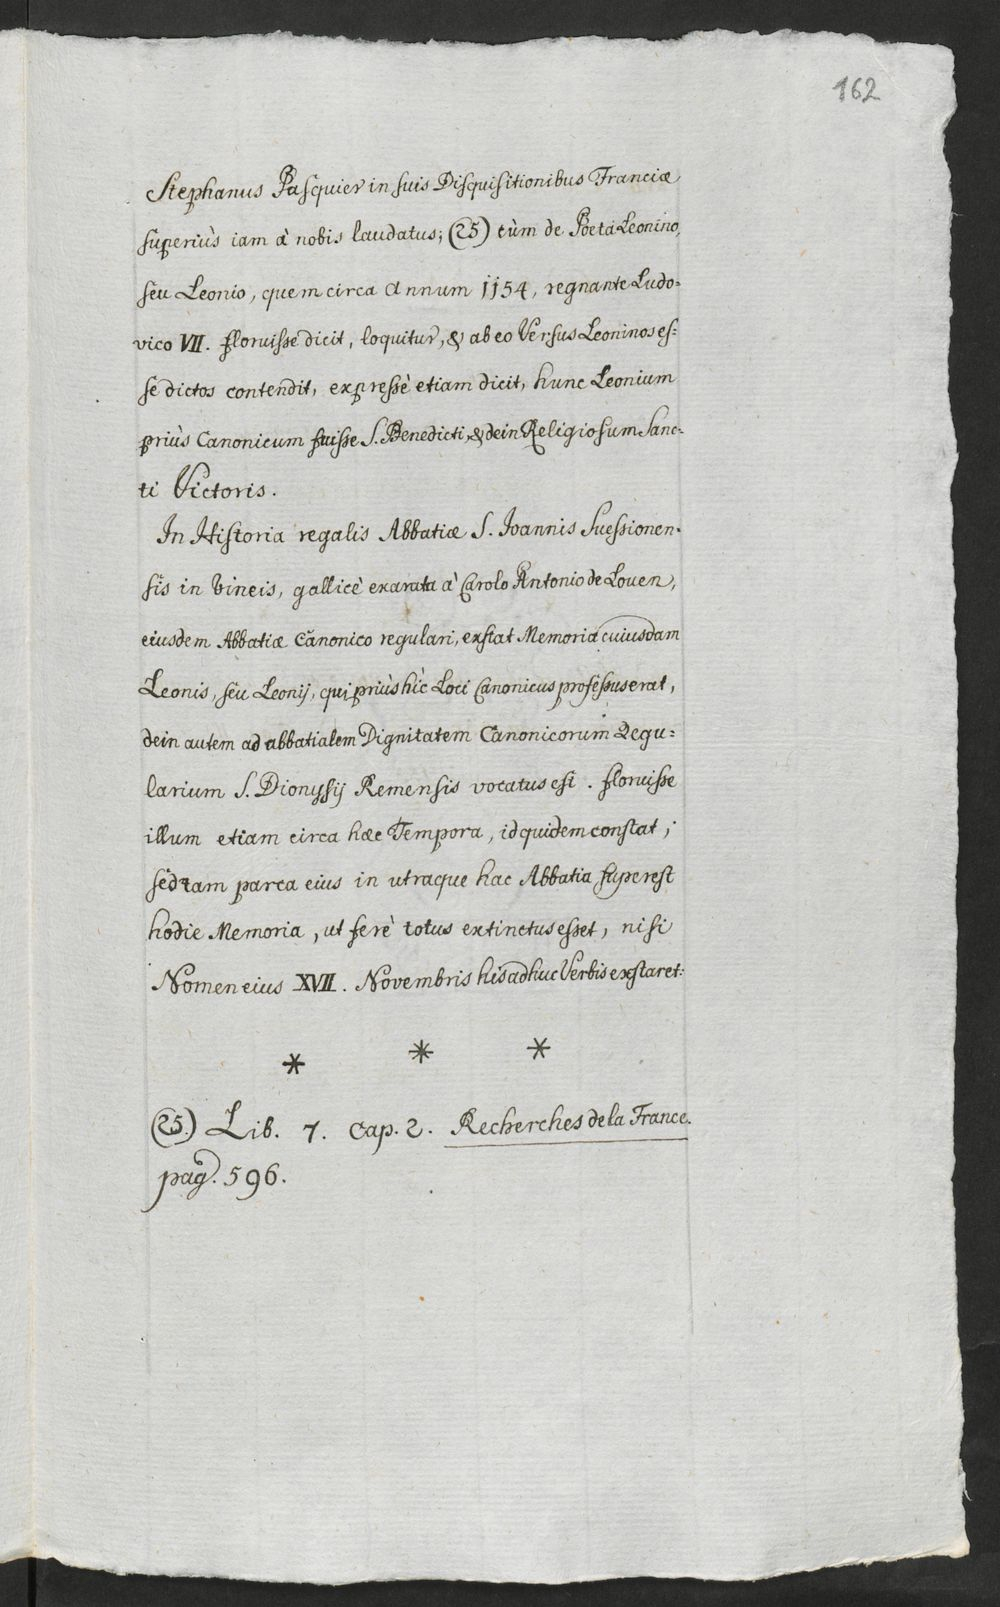 162
Stephanus Pasquier in suis Disquisitionibus Franciæ
superiùs iam à nobis laudatus; (25) tùm de Poeta Leonino,
seu Leonio, quem circa Annum 1154, regnante Ludo=
vico VII. floruisse dicit, loquitur, & ab eo Versus Leoninos es=
se dictos contendit, expressè etiam dicit, hunc Leonium
priùs Canonicum fuisse S. Benedicti, & dein Religiosum Sanc=
ti Victoris.
In Historia regalis Abbatiæ S. Ioannis Suessionen=
sis in Vineis, gallicè exarata à Carolo Antonio de Louen,
eiusdem Abbatiæ Canonico regulari, exstat Memoria cuiusdam
Leonis, seu Leonij, qui priùs hìc Loci Canonicus professus erat,
dein autem ad abbatialem Dignitatem Canonicorum Regu=
larium S. Dionysij Remensis vocatus est. floruisse
illum etiam circa hæc Tempora, id quidem constat;
sed tam parca eius in utraque hac Abbatia superest
hodie Memoria, ut ferè totus extinctus esset, nisi
Nomen eius XVII. Novembris his adhuc Verbis exstaret:
* * *
(25.) Lib. 7. Cap. 2. Recherches de la France.
pag. 596.